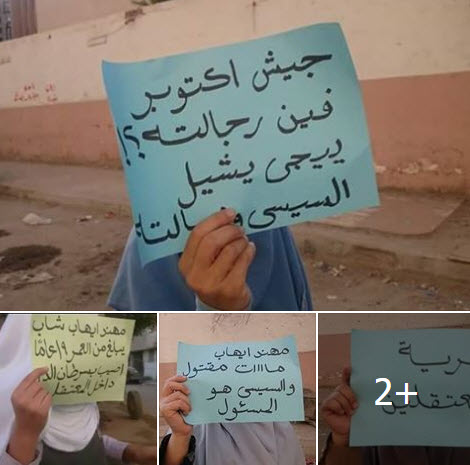 جيش اكتوبر
فين رجالته؟!
ييجى يشيل
السيسى
مهند ايهاب شاب
يبلغ من العمر ١٩ عامًا
اصيب بسرطان
داخل المعتقل
مهند ايهاب
مااات مقتول
والسيسى هو
المسئول
2+